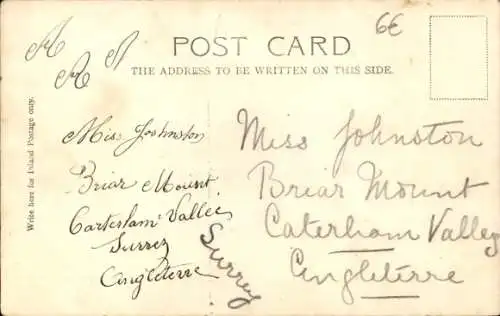 6€
POST CARD
THE ADDRESS TO BE WRITTEN ON THIS SIDE.
Write here for Inland Postage only.
Miss Johnston
Briar Mount
Carterlam Vallei
Surrey
Angleterre
Miss Johnston
Briar Mount
Caterham Valley
Surrey
Angleterre